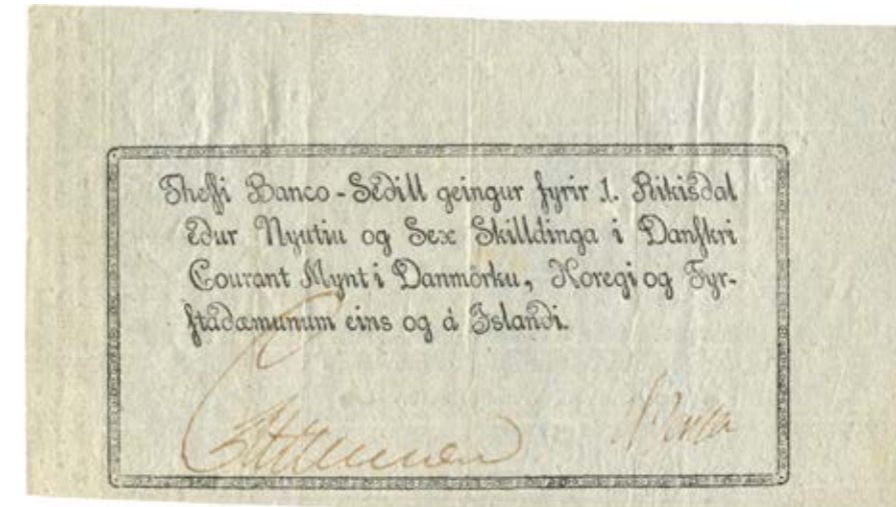 Thessi Banco-Sedill geingur fyrir 1. Rikisdal
edur Nyutiu og Sex Skilldinga i Danskri
Courant Mynt i Danmörku, Noregi og Fyr-
stadæmunum eins og á Islandi.